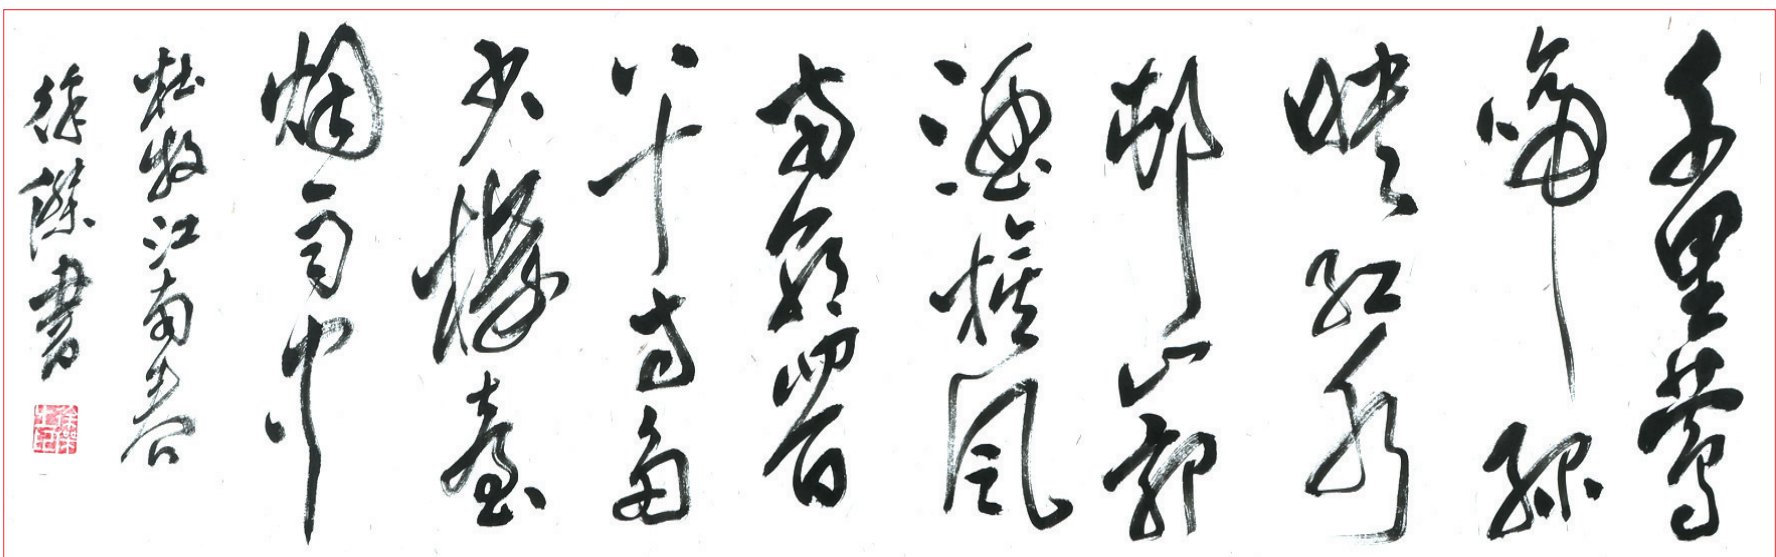 千里莺
啼绿
映红水
村山郭
酒旗风
南朝四百
八十寺多
少楼臺
烟雨中
杜牧江南春
徐杰书